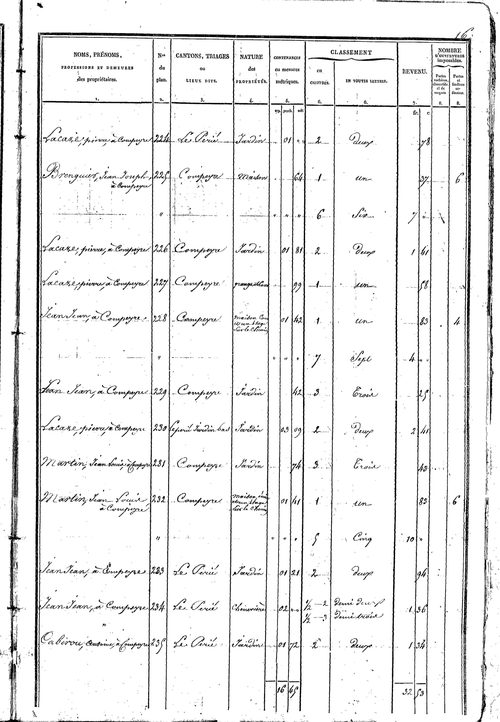 16
NOMS, PRÉNOMS,
PROFESSIONS ET DEMEURES
des propriétaires.
Nos
du
plan.
CANTONS, TRIAGES
ou
LIEUX DITS.
NATURE
des
PROPRIÉTÉS.
CONTENANCES
en mesures
métriques.
CLASSEMENT
en
CHIFFRES.
EN TOUTES LETTRES.
REVENU.
NOMBRE
D'OUVERTURES
imposables.
1. 2. 3. 4. 5. 6. 6. 7. 8. 8.
fr. c.
Lacaze, pierre, à Compeyre 224 Le Périé Jardin 01 " 2 deux 78
Brenguier, Jean Joseph, 225 Compeyre Maison 64 1 un 37 6
à Compeyre
" " " " 6 Six 7 "
Lacaze, pierre, à Compeyre 226 Compeyre Jardin 01 81 2 Deux 1 41
Lacaze, pierre, à Compeyre 227 Compeyre 99 1 un 58
Jean Jean, à Compeyre 228 Compeyre maison 01 42 1 un 83 4
" " " " 7 Sept 4 "
Jean Jean, à Compeyre 229 Compeyre Jardin 42 3 Trois 25
Lacaze, pierre, à Compeyre 230 Jardin bas Jardin 03 09 2 deux 2 41
Martin, Jean Louis, à Compeyre 231 Compeyre Jardin 74 3 Trois 43
Martin, Jean Louis 232 Compeyre maison 01 41 1 un 83 6
à Compeyre
" " " " 5 Cinq 10 "
Jean Jean, à Compeyre 233 Le Périé Jardin 01 21 2 deux 94
Jean Jean, à Compeyre 234 Le Périé Chenevière 02 " 1/2 - 2 demi deux 1 36
1/2 - 3 demi trois
Cabirou, à Compeyre 235 Le Périé Jardin 01 72 2 deux 1 34
16 65 32 53